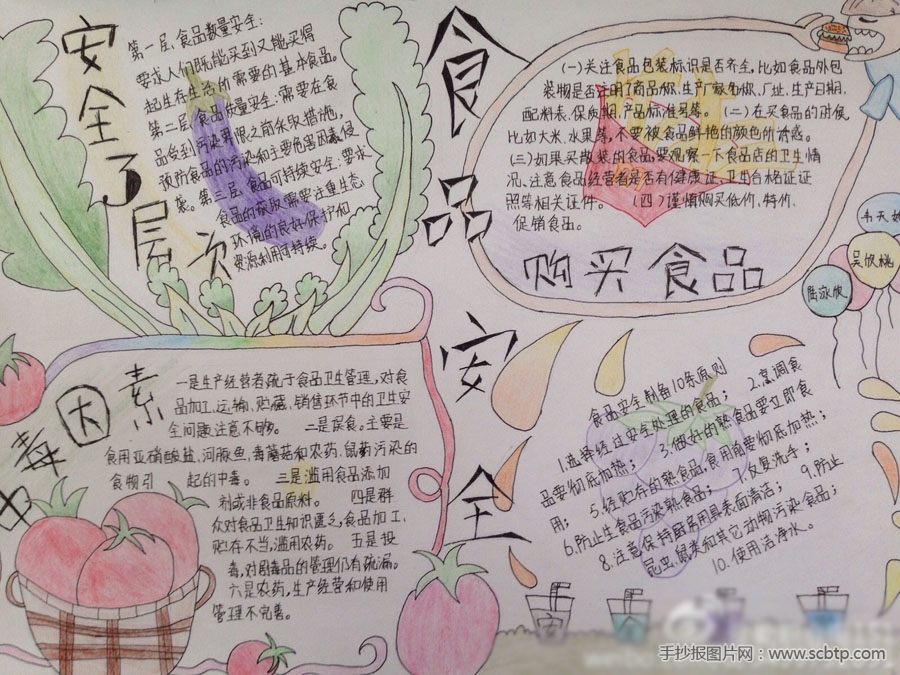 安全3层次
第一层、食品数量安全:
要求人们既能买到又能买得
起生存生活所需要的基本食品。
第二层、食品质量安全:需要在食
品受到污染界限之前采取措施,
预防食品的污染和主要危害因素侵
袭。第三层、食品可持续安全:要求
食品的获取需要注重生态
环境的良好保护和
资源利用可持续。
食品安全
(一)关注食品包装标识是否齐全,比如食品外包
装物是否注明了商品标、生产厂家名称、厂址、生产日期、
配料表、保质期、产品标准号等。(二)在买食品的时候,
比如大米、水果等,不要被食品鲜艳的颜色所诱惑。
(三)如果买散装的食品,要观察一下食品店的卫生情
况、注意食品经营者是否有健康证、卫生合格证证
照等相关证件。(四)谨慎购买低价、特价、
促销食品。
购买食品
韦天
吴欣桃
陆泳欣
中毒因素
一是生产经营者疏于食品卫生管理,对食
品加工、运输、贮藏、销售环节中的卫生安
全问题注意不够。 二是误食。主要是
食用亚硝酸盐、河豚鱼、毒蘑菇和农药、鼠药污染的
食物引 起的中毒。 三是滥用食品添加
剂或非食品原料。 四是群
众对食品卫生知识匮乏,食品加工、
贮存不当,滥用农药。 五是投
毒,对剧毒品的管理仍有疏漏。
六是农药,生产经营和使用
管理不完善。
食品安全制备10条原则
1.选择经过安全处理的食品; 2.烹调食
品要彻底加热; 3.做好的熟食品要立即食
用; 5.经贮存的熟食品,食用前要彻底加热;
6.防止生食品污染熟食品; 7.反复洗手;
8.注意保持厨房用具表面清洁; 9.防止
昆虫、鼠类和其它动物污染食品;
10.使用洁净水。
安
手抄报图片网:www.scbtp.com